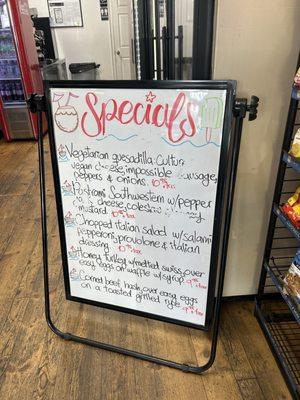 Specials
Vegetarian quesadilla: Cultur
vegan cheese, impossible sausage,
peppers & onions. 10
Pastrami Southwestern w/pepper
cheese, coleslaw
mustard.
Chopped Italian salad w/salami,
pepperoni, provolone & italian
dressing.
Honey turkey w/melted swiss, over
easy eggs on waffle w/syrup.
Corned beef hash, over easy eggs
on a toasted grilled rye.